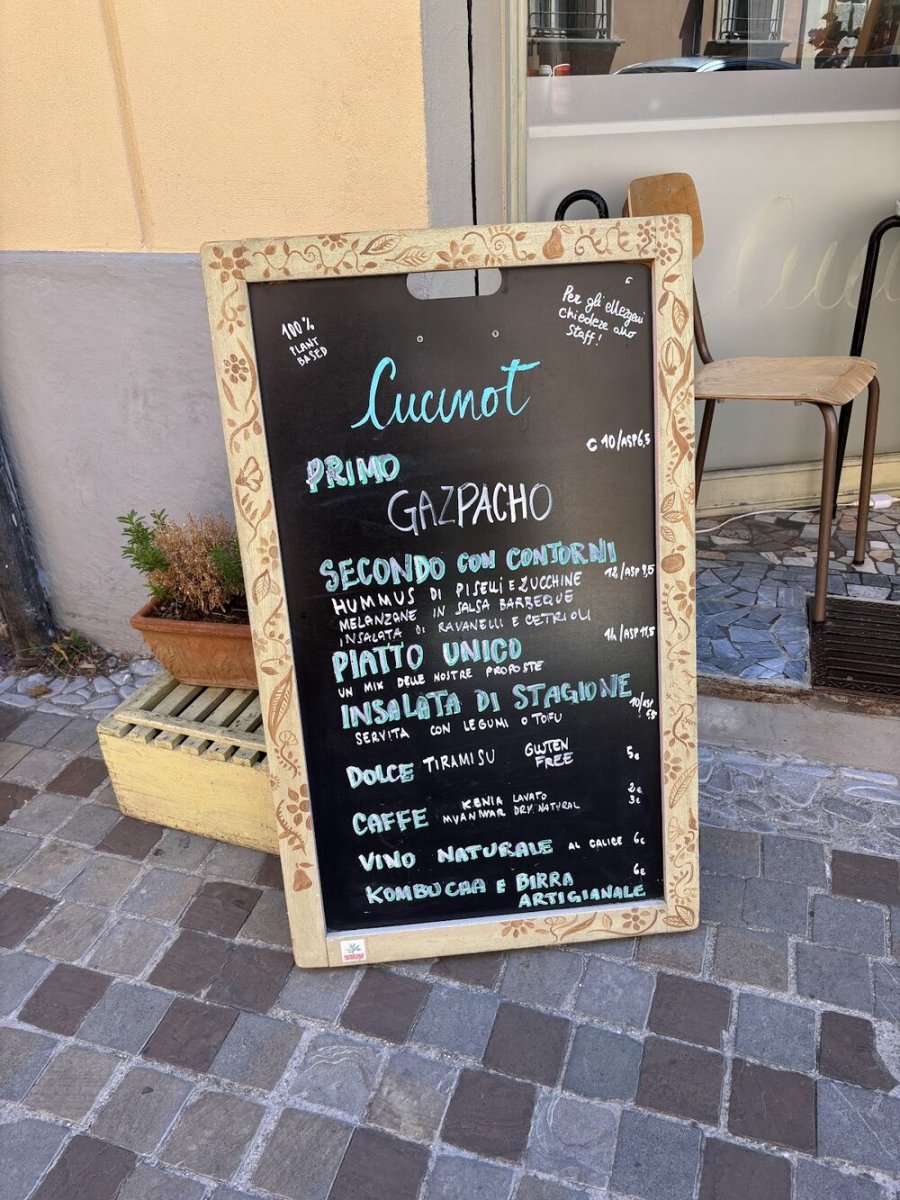 100%
PLANT
BASED
Per gli allergeni
chiedere allo
staff!
Cucinot
C 10/ASP 6,5
PRIMO
GAZPACHO
SECONDO CON CONTORNI
12/ASP 9,5
HUMMUS DI PISELLI E ZUCCHINE
MELANZANE IN SALSA BARBEQUE
INSALATA DI RAVANELLI E CETRIOLI
14/ASP 11,5
PIATTO UNICO
UN MIX DELLE NOSTRE PROPOSTE
INSALATA DI STAGIONE
10/ASP
SERVITA CON LEGUMI O TOFU
DOLCE TIRAMISU GLUTEN FREE 5€
CAFFE KENIA LAVATO 2€
MYANMAR DRY NATURAL 3€
VINO NATURALE AL CALICE 6€
KOMBUCHA E BIRRA 6€
ARTIGIANALE